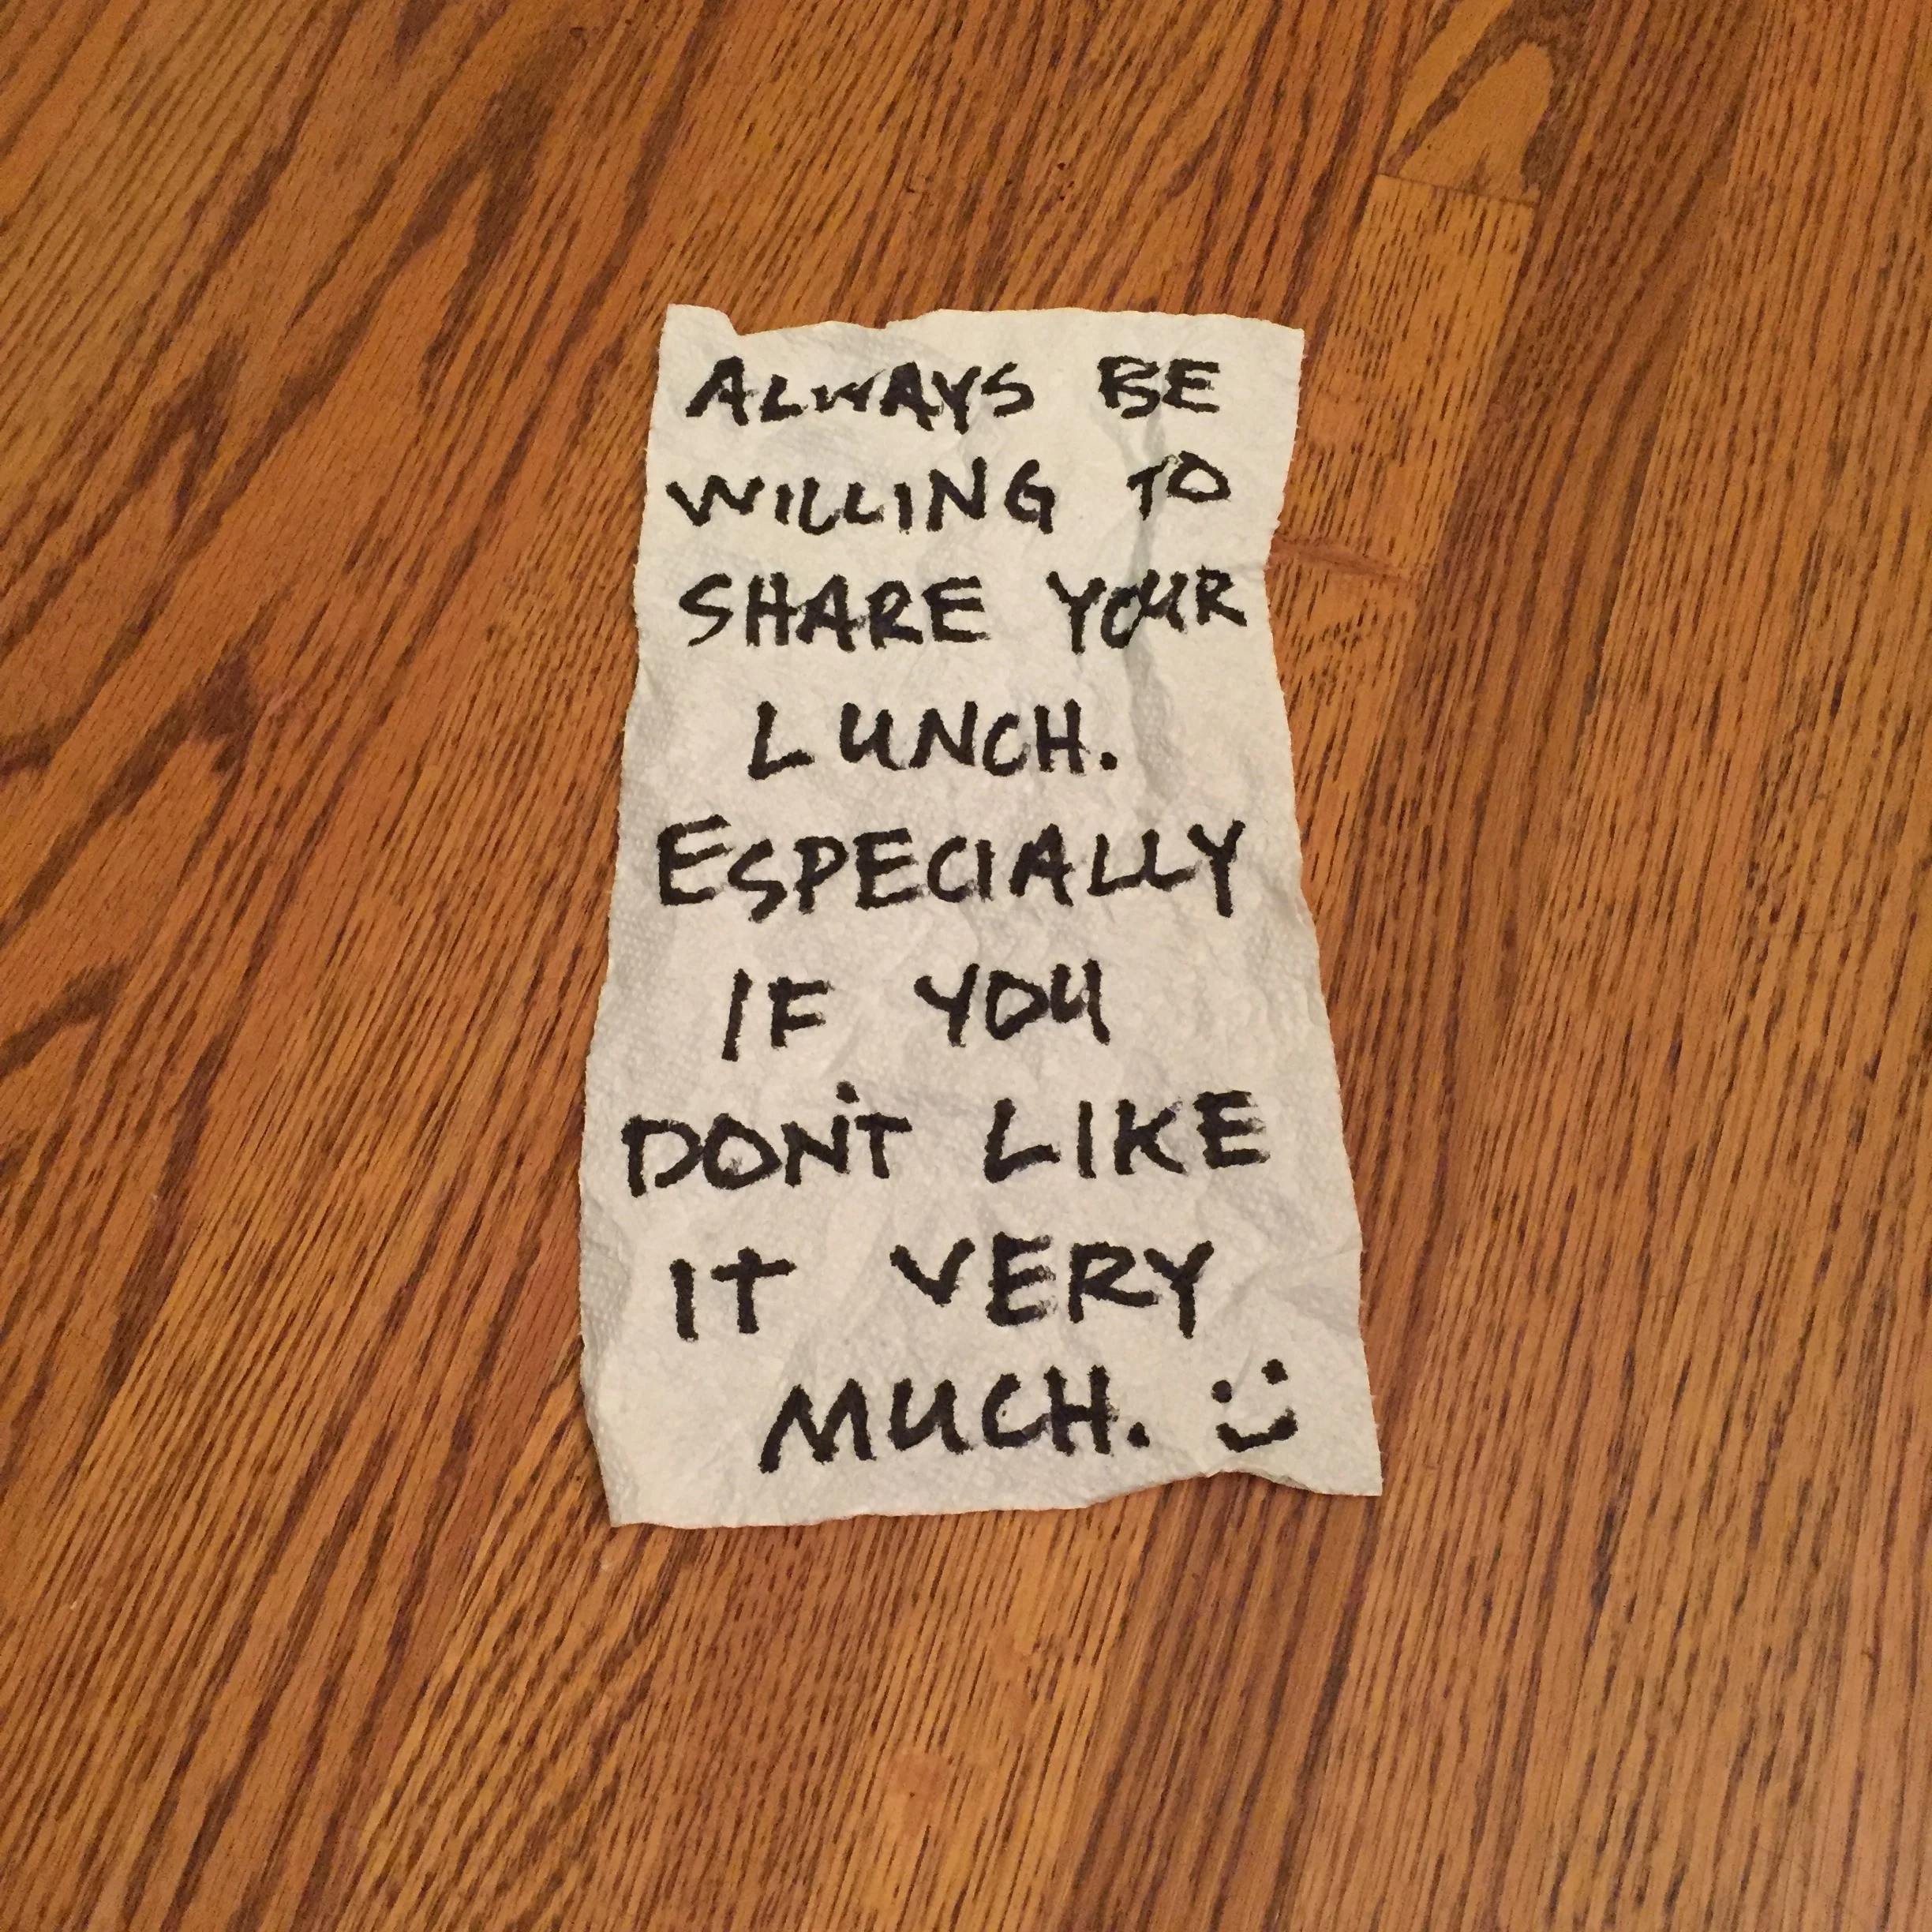 ALWAYS BE
WILLING TO
SHARE YOUR
LUNCH.
ESPECIALLY
IF YOU
DON'T LIKE
IT VERY
MUCH.